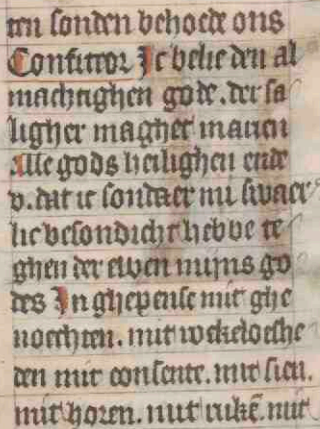 ten sonden behoede ons
Confiteor Ic belie den al
machtighen gode. der sa
ligher magher marien
Alle gods heilighen ende
v. dat ic sondaer mi swaer
lic besondicht hebbe te
ghen der ewen mijns go
des In ghepense mit ghe
noechten. mit
den mit consente. mit sien.
mit horen. mit rukē. mit